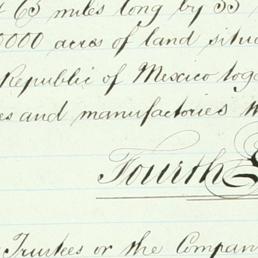 65 miles long by 35
0000 acres of land situ
Republic of Mexico toge
es and manufactories w
Fourth S
Trustees or the Compan